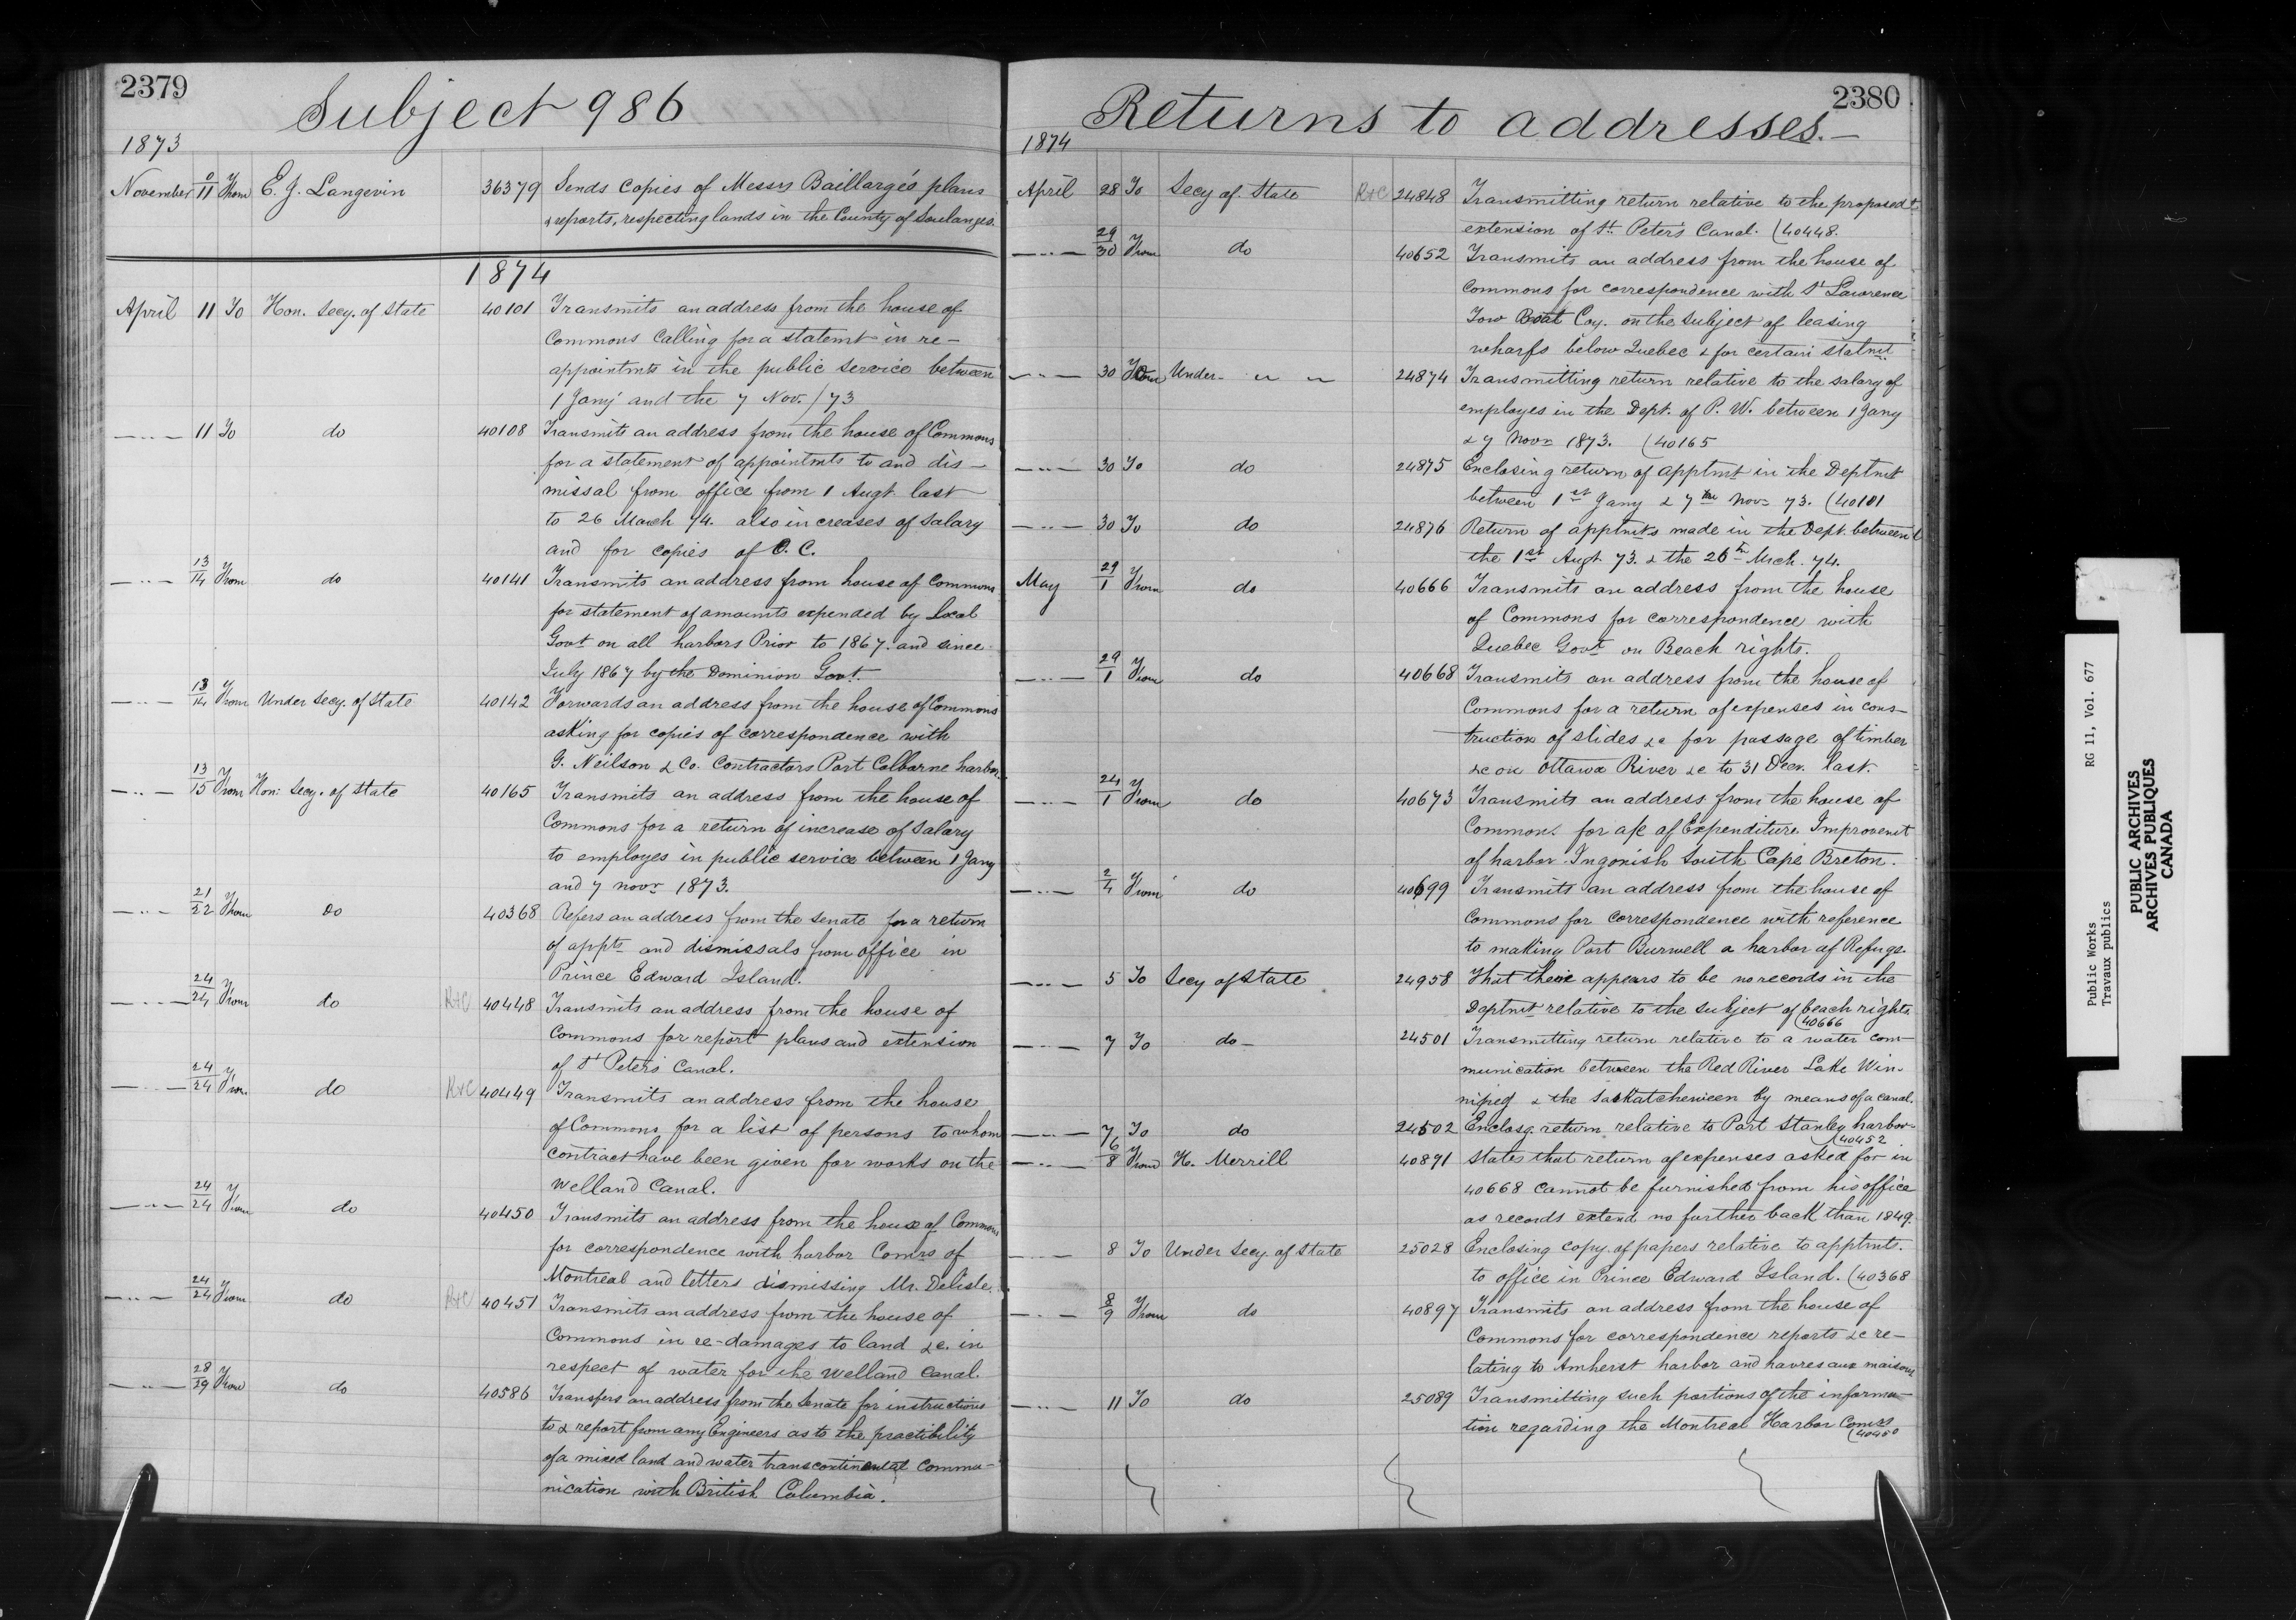 2379
Subject 986
1873
November 9/11 From E. J. Langevin 36379 Sends copies of Messrs Baillargé's plans
& reports, respecting lands in the County of Soulanges.
1874
April 11 To Hon. Secy. of State 40101 Transmits an address from the house of
Commons Calling for a statemt in re-
appointmts in the public service between
1 Jany and the 7 Nov. / 73
—..— 11 To do 40108 Transmits an address from the house of Commons
for a statement of appointmts to and dis-
missal from office from 1 Augt. last
to 26 March 74. also increases of salary
and for copies of O. C.
—..— 13/14 From do 40141 Transmits an address from house of Commons
for statement of amounts expended by local
Govt. on all harbors Prior to 1867. and since
July 1867 by the Dominion Govt.
—..— 13/14 From Under Secy. of State 40142 Forwards an address from the house of Commons
asking for copies of correspondence with
G. Neilson & Co. Contractors Port Colborne harbor.
—..— 13/15 From Hon: Secy. of State 40165 Transmits an address from the house of
Commons for a return of increase of salary
to employes in public service between 1 Jany
and 7 novr 1873.
—..— 21/22 From Do 40368 Refers an address from the senate for a return
of appts and dismissals from office in
Prince Edward Island.
—..— 24/24 From do R&C 40448 Transmits an address from the house of
Commons for report plans and extension
of St Peter's Canal.
—..— 24/24 From do R&C 40449 Transmits an address from the house
of Commons for a list of persons to whom
contract have been given for works on the
Welland Canal.
—..— 24/24 From do 40450 Transmits an address from the house of Commons
for correspondence with harbor Comrs of
Montreal and letters dismissing Mr. Delisle.
—..— 24/24 From do R&C 40451 Transmits an address from the house of
Commons in re-damages to land &c. in
respect of water for the Welland Canal.
—..— 28/29 From do 40586 Transfers an address from the Senate for instructions
to & report from any Engineers as to the practibility
of a mixed land and water transcontinental commu-
nication with British Columbia.
2380
Returns to addresses.—
1874
April 28 To Secy of State R&C 24848 Transmitting return relative to the proposed
extension of St. Peter's Canal. (40448.
—..— 29/30 From do 40652 Transmits an address from the house of
Commons for correspondence with St Lawrence
Tow Boat Coy. on the subject of leasing
wharfs below Quebec & for certain statmt
—..— 30 To Under- " " 24874 Transmitting return relative to the salary of
employes in the Dept. of P. W. between 1 Jany
& 7 Novr 1873. (40165
—..— 30 To do 24875 Enclosing return of apptmt in the Deptmt
between 1st Jany & 7th Novr 73. (40101
—..— 30 To do 24876 Return of apptmts made in the Dept. between
the 1st Augt 73. & the 26th Mrch. 74.
May 29/1 From do 40666 Transmits an address from the house
of Commons for correspondence with
Quebec Govt on Beach rights.
—..— 29/1 From do 40668 Transmits an address from the house of
Commons for a return of expenses in cons-
truction of slides &c for passage of timber
&c on Ottawa River &c to 31 Decr. last.
—..— 24/1 From do 40673 Transmits an address from the house of
Commons for a/c of Expenditure Improvemt
of harbor Ingonish South Cape Breton.
—..— 2/4 From do 40699 Transmits an address from the house of
Commons for correspondence with reference
to making Port Burwell a harbor of Refuge.
—..— 5 To Secy of State 24958 That there appears to be no records in the
Deptmt relative to the subject of beach rights.
(40666
—..— 7 To do- 24501 Transmitting return relative to a water com-
munication between the Red River Lake Win-
nipeg & the Saskatcheween by means of a canal.
—..— 7 To do 24502 Enclosg. return relative to Port Stanley harbor-
(40452
—..— 6/8 From H. Merrill 40891 States that return of expenses asked for in
40668 cannot be furnished from his office
as records extend no further back than 1849.
—..— 8 To Under Secy. of State 25028 Enclosing copy of papers relative to apptmts.
to office in Prince Edward Island. (40368
—..— 8/9 From do 40897 Transmits an address from the house of
Commons for correspondence reports &c re-
lating to Amherst harbor and havres aux maisons
—..— 11 To do 25089 Transmitting such portions of the informa-
tion regarding the Montreal Harbor Comss
(40450
Public Works RG 11, Vol. 677
Travaux publics
PUBLIC ARCHIVES
ARCHIVES PUBLIQUES
CANADA